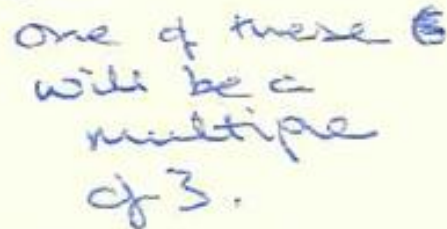 one of these
will be a
multiple
of 3.